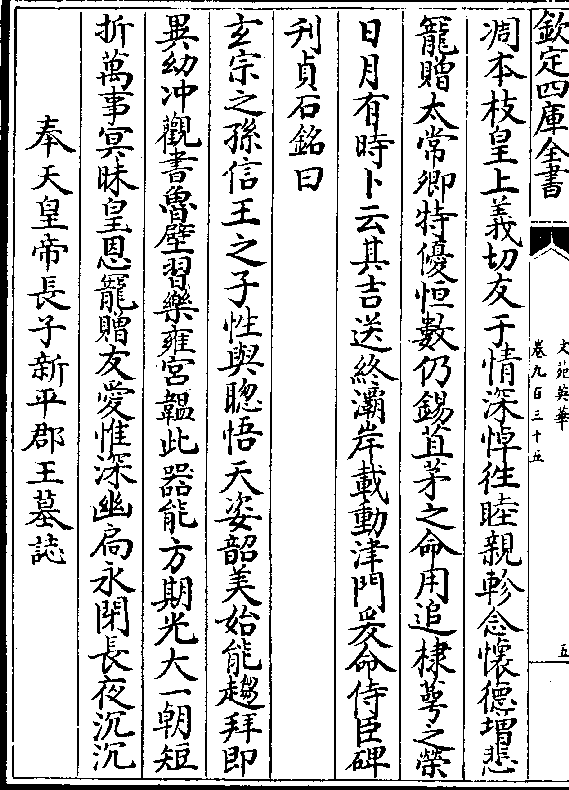 欽定四庫全書
文苑英華
卷九百三十五
五
凋本枝皇上義切友于情深悼徃睦親軫念懷德增悲
寵贈太常卿特優恒數仍錫苴茅之命用追棣萼之榮
日月有時卜云其吉送終灞岸載動津門爰命侍臣碑
刋貞石銘曰
玄宗之孫信王之子性與聰悟天姿韶美始能趨拜即
異幼冲觀書魯壁習樂雍宮韞此器能方期光大一朝短
折萬事冥昧皇恩寵贈友愛惟深幽扃永閉長夜沉沉
奉天皇帝長子新平郡王墓誌